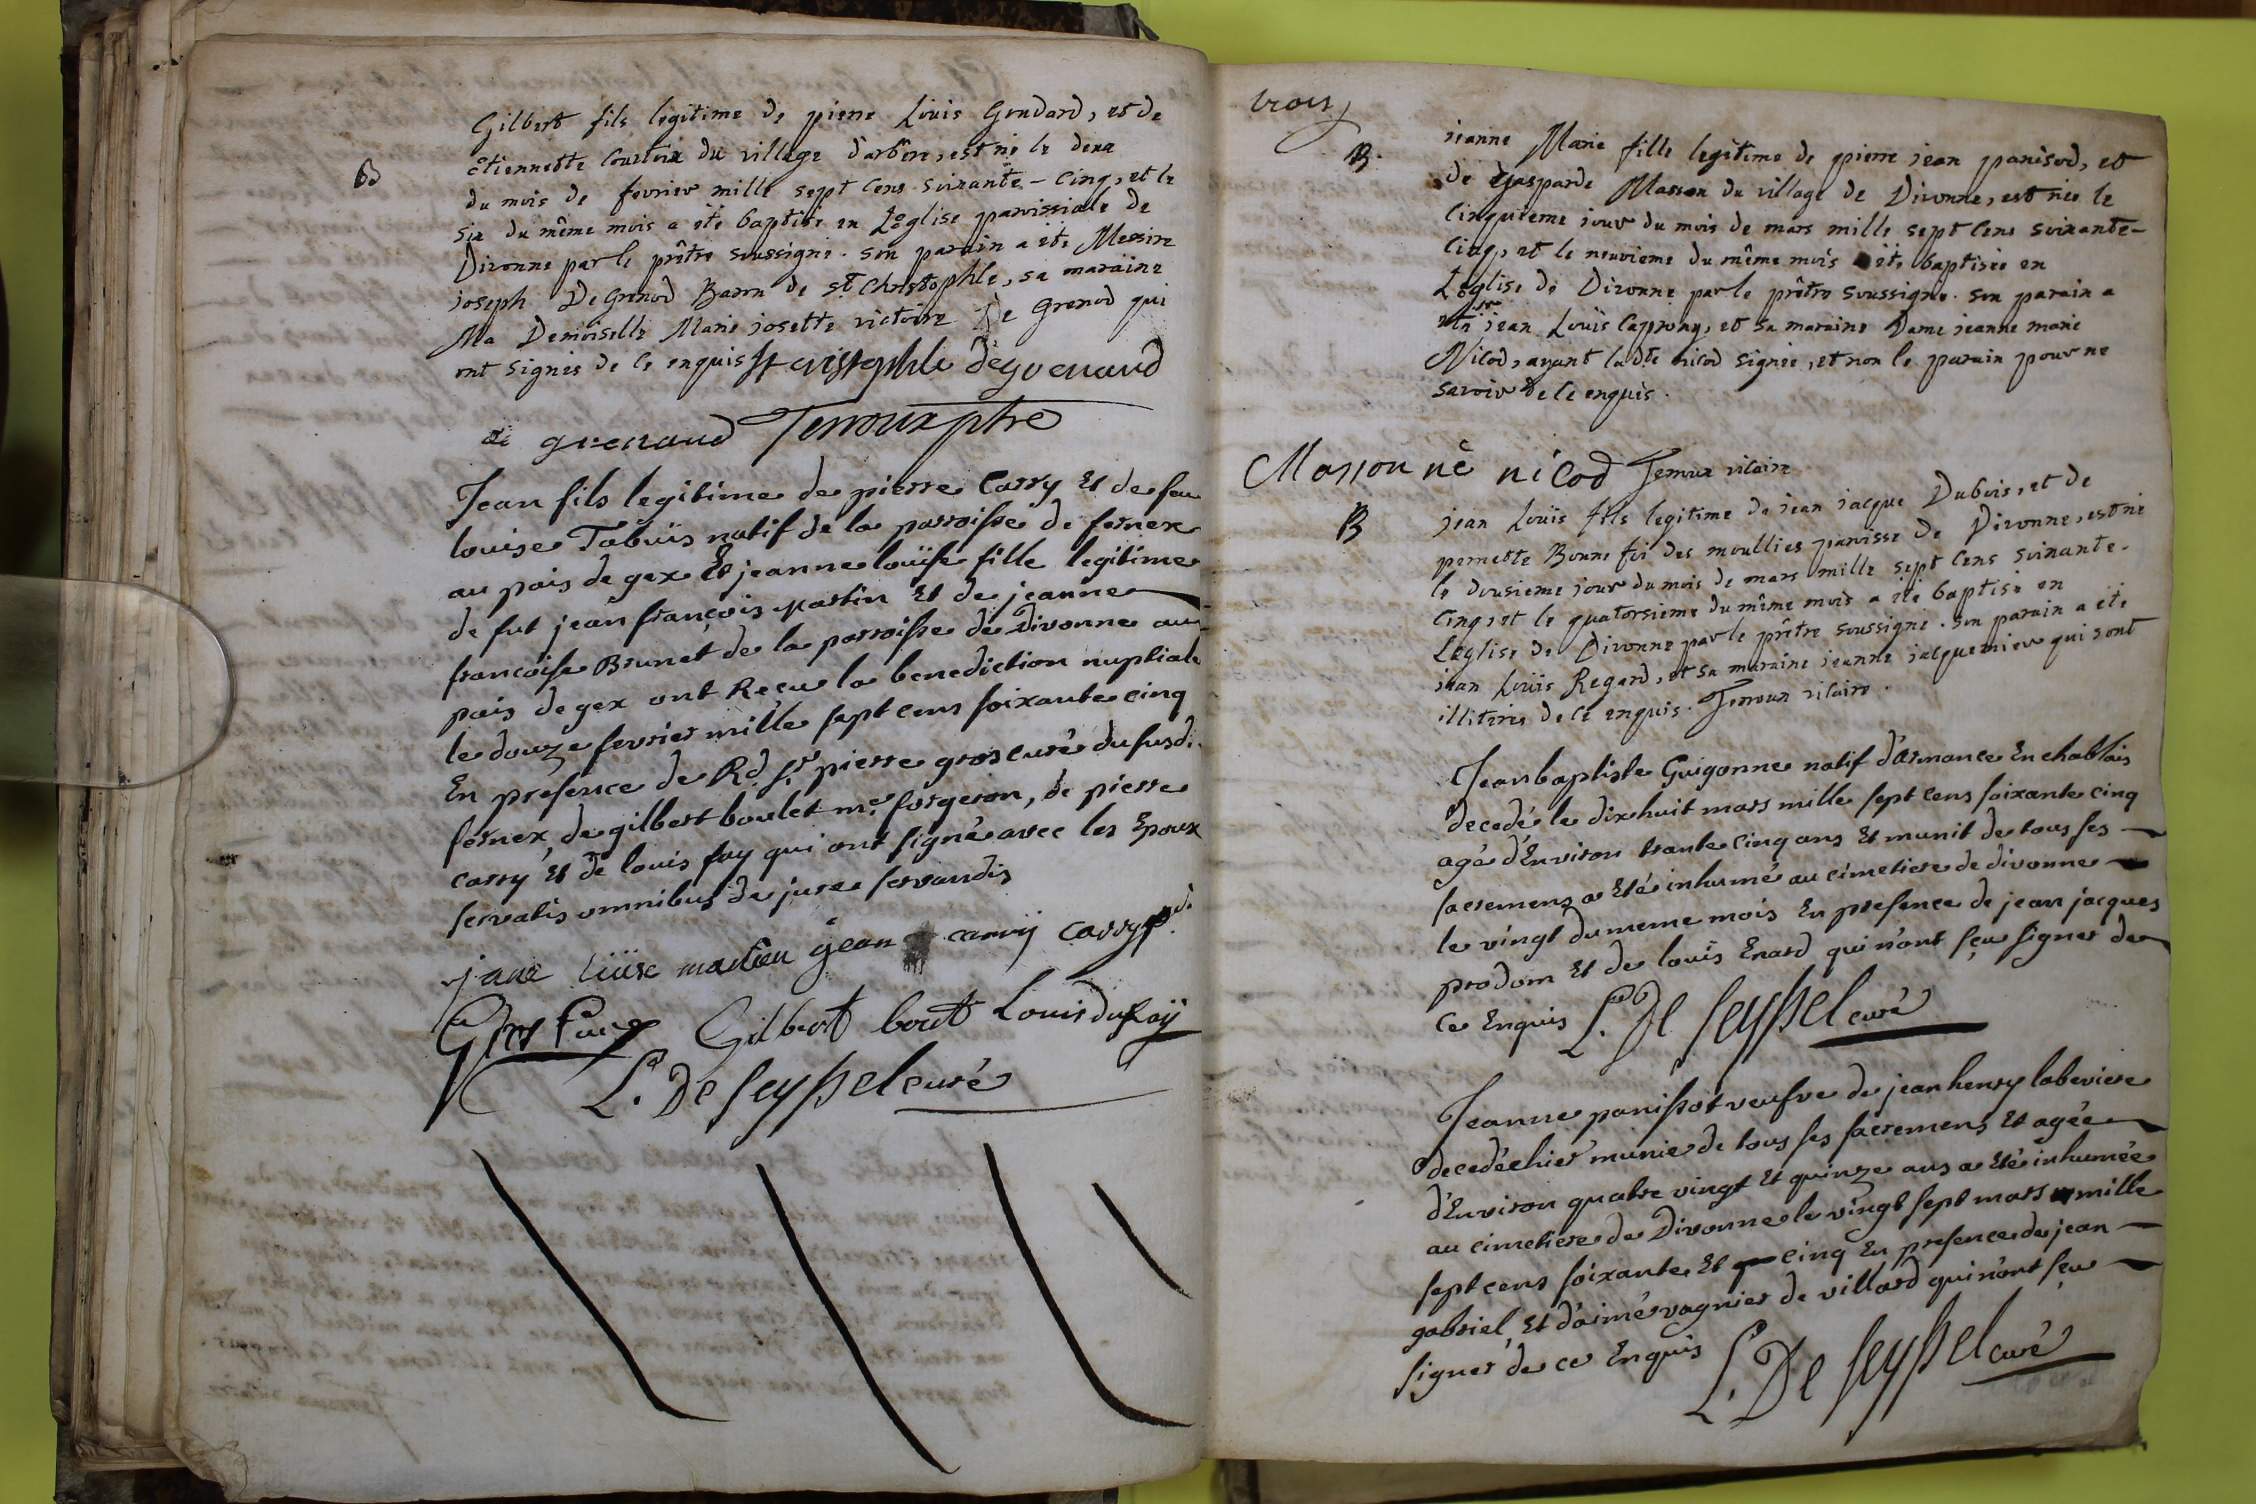 Gilbert fils legitime de pierre Loüis Goudard, et de
B
etiennette Courtoix du village d'arbere, est né le deux
du mois de fevrier mille sept cens soixante-cinq, et le
six du même mois a été baptisé en L'eglise paroissiale de
Divonne par le prêtre soussigné. son parain a été Messire
joseph De Grenod Baron de st. Christophle, sa maraine
Ma Demoiselle Marie josette victoire De Grenod qui
ont signés de ce enquis st cristophle degrenaud
de grenaud Terroux ptre
Jean fils legitime de pierre Carry Et de feu
louise Tabuis natif de la parroisse de fernex
au païs de gex Et jeanne loüise fille legitime
de fut jean françois Martin Et de jeanne
françoise Brunet de la parroisse de Divonne au
païs de gex ont Reçu la benediction nuptiale
le douze fevrier mille sept cens soixante cinq
En présence de Rd. sr. pierre gros curé du susdi.
fernex, de gilbert boulet me. forgeron, de pierre
carry Et de louis fay qui ont signé avec les Epoux
servatis omnibus de jure servandis
jane luise martin jean carry carry
Gros Curé Gilbert boult Louis dufay
L. De seyssel curé
trois
B.
jeanne Marie fille legitime de pierre jean panisod, et
de gasparde Masson du village de Divonne, est née le
cinquieme jour du mois de mars mille sept cens soixante-
cinq, et le neuvieme du même mois a été baptisée en
L'eglise de Divonne par le prêtre soussigné. son parain a
été jean Loüis Caprony, et sa maraine Dame jeanne marie
Nicod, ayant ladte nicod signée, et non le parain pour ne
savoir de ce enquis.
Masson né nicod Terroux vicaire
B
jean Loüis fils legitime de jean jacque Dubois, et de
pernette Bonne foi des moullies paroisse de Divonne, est né
le dousieme jour du mois de mars mille sept cens soixante-
cinq, et le quatorsieme du même mois a été baptisé en
L'eglise de Divonne par le prêtre soussigné. son parain a été
jean Loüis Regard, et sa maraine jeanne jacquemier qui sont
illiterés de ce enquis. Terroux vicaire.
Jean baptiste Guigonne natif d'armance En chablais
decedé le dix huit mars mille sept cens soixante cinq
agé d'Environ trante cinq ans Et munit de tous ses
sacremens a Eté inhumé au cimetiere de divonne
le vingt du meme mois En presence de jean jacques
prodom Et de louis Enard qui n'ont sçu signer de
ce Enquis L. De seyssel curé
Jeanne panissot veufve de jean henry laberiere
decedée hier munie de tous ses sacremens Et agée
d'Environ quatre vingt Et quinze ans a Eté inhumée
au cimetiere de Divonne le vingt sept mars mille
sept cens soixante Et cinq En presence de jean
gabriel, Et d'aimé vagnier de villard qui n'ont sçu
signer de ce Enquis L. De seyssel curé